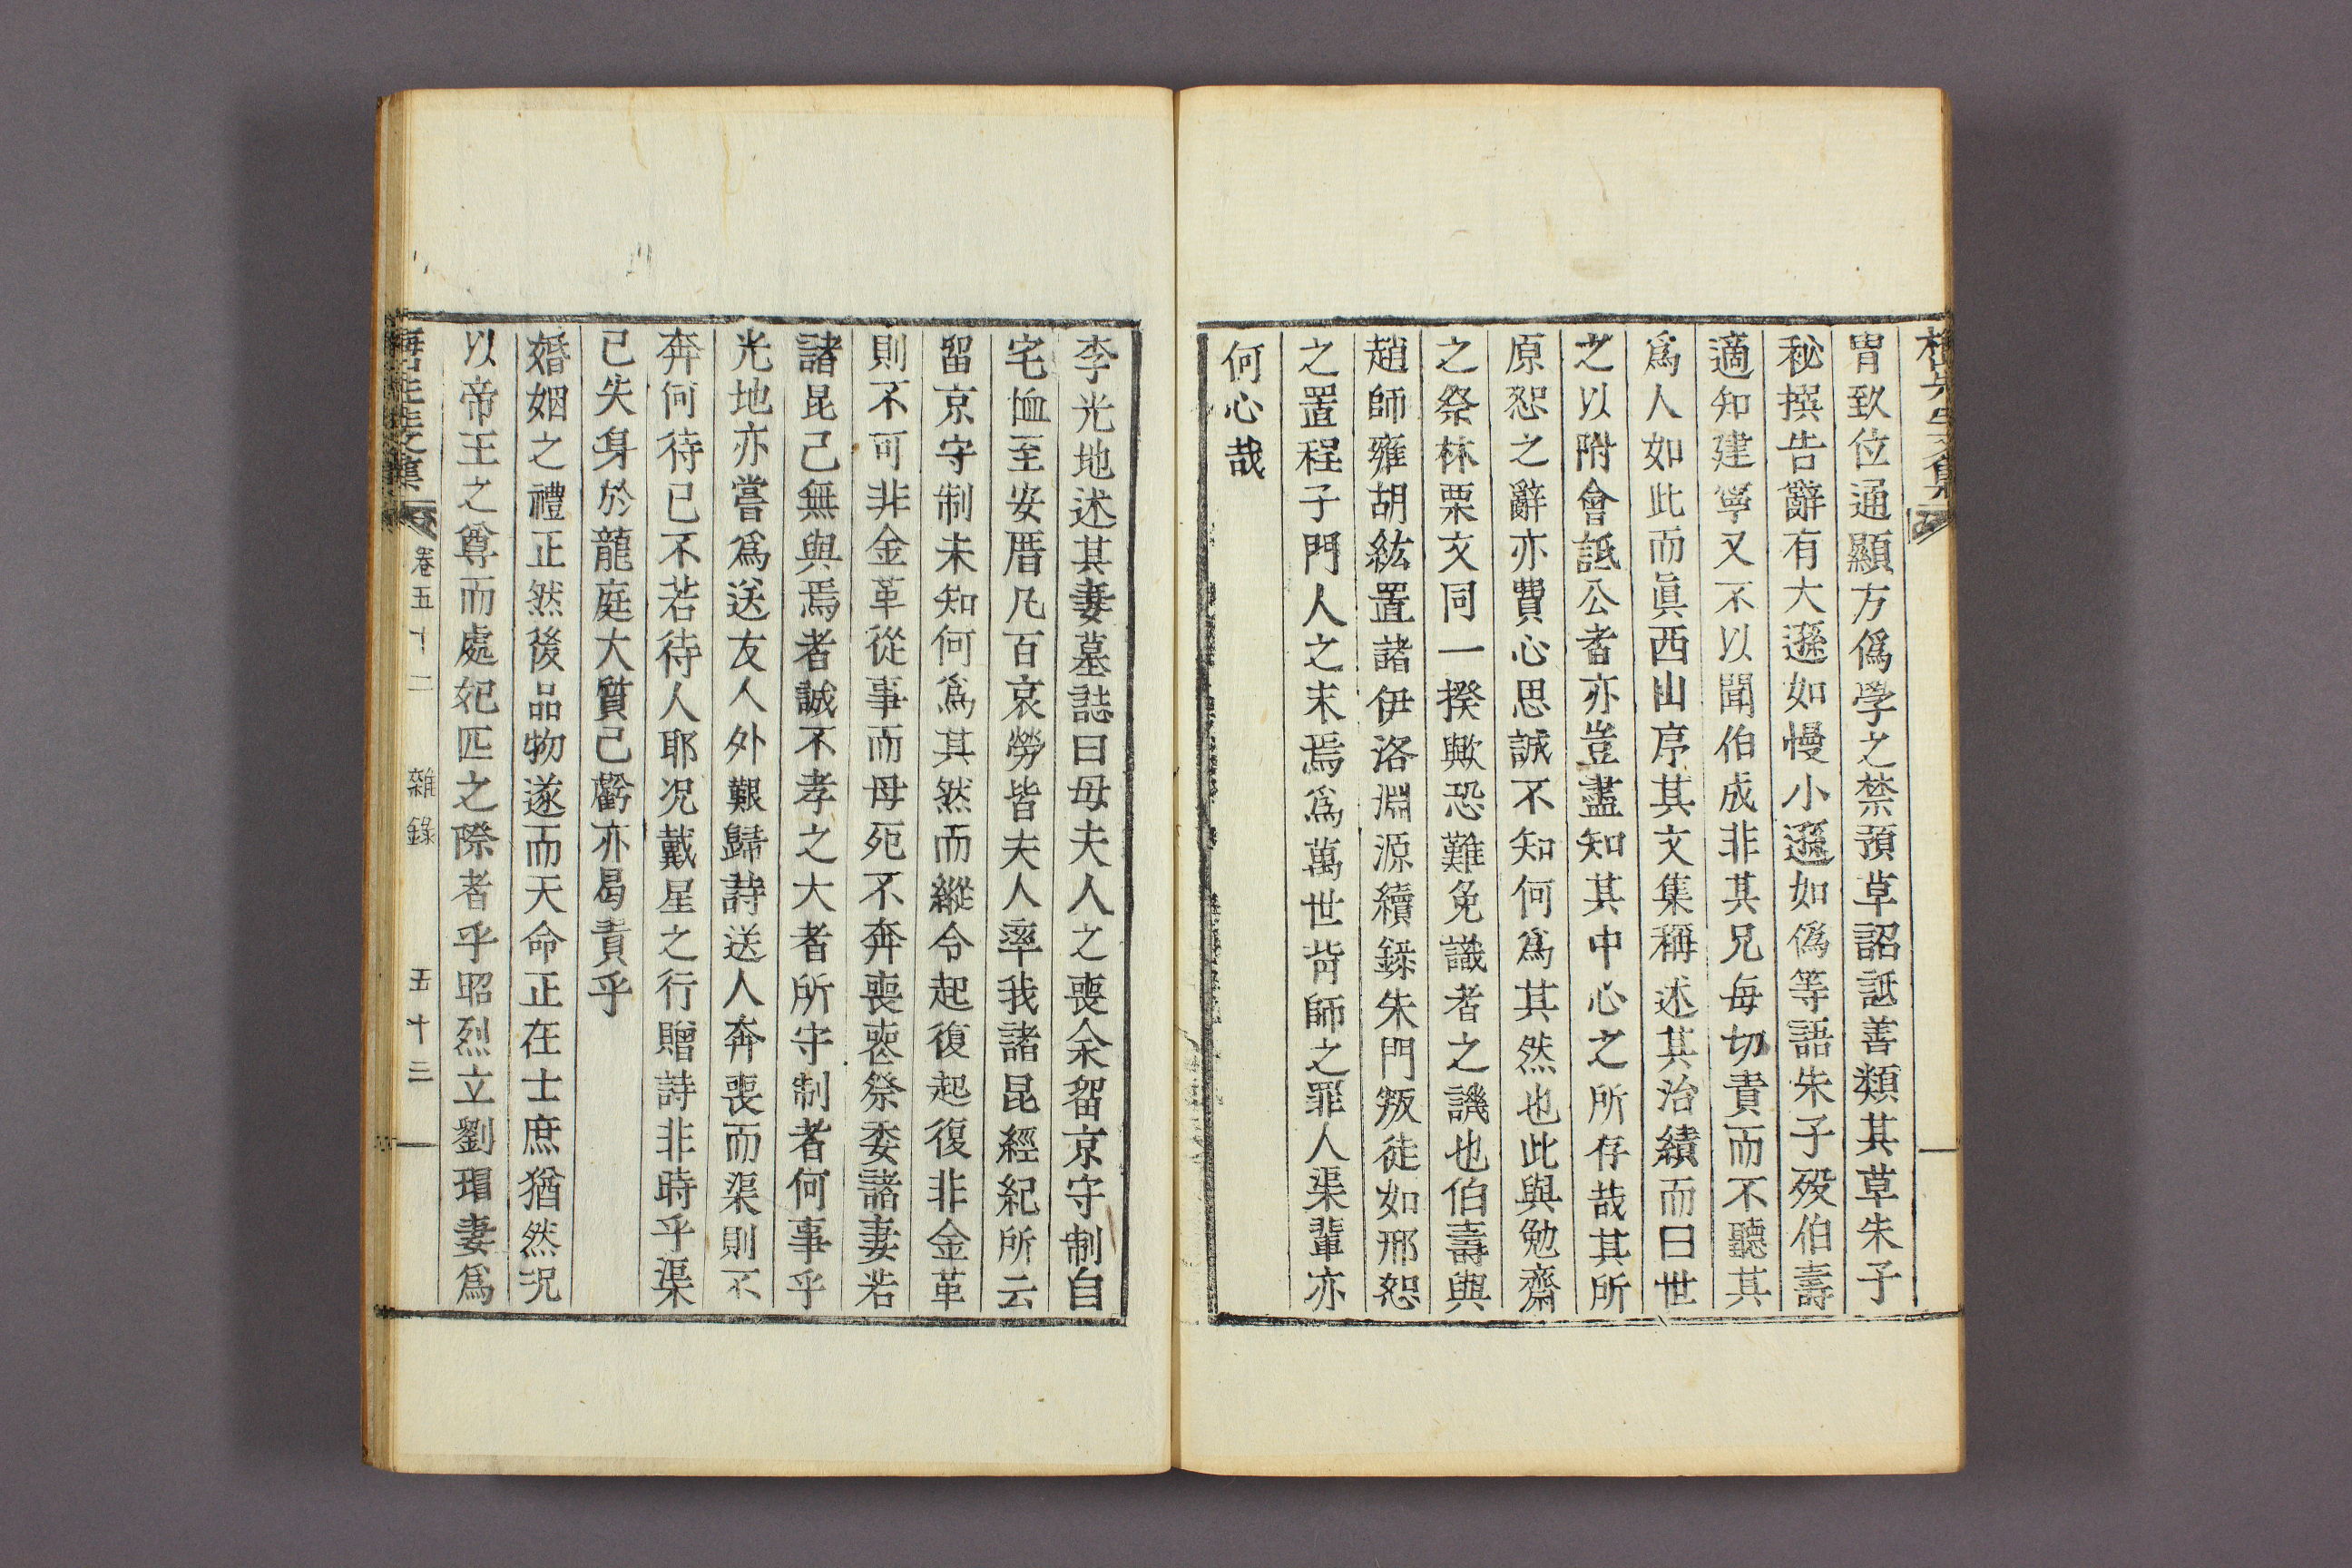 胄致位通顯方僞學之禁預草詔詆善類其草朱子
秘撰告辭有大遜如慢小遜如僞等語朱子歿伯壽
適知建寧又不以聞伯成非其兄每切責而不聽其
爲人如此而眞西山序其文集稱述其治績而曰世
之以附會詆公者亦豈盡知其中心之所存哉其所
原恕之辭亦費心思誠不知何爲其然也此與勉齋
之祭林栗文同一揆歟恐難免識者之譏也伯壽與
趙師雍胡紘置諸伊洛淵源續錄朱門叛徒如邢恕
之置程子門人之末焉爲萬世背師之罪人渠輩亦
何心哉
李光地述其妻墓誌曰母夫人之喪余留京守制自
宅恤至安厝凡百哀勞皆夫人率我諸昆經紀所云
留京守制未知何爲其然而縱令起復起復非金革
則不可非金革從事而母死不奔喪喪祭委諸妻若
諸昆己無與焉者誠不孝之大者所守制者何事乎
光地亦嘗爲送友人外艱歸詩送人奔喪而渠則不
奔何待已不若待人耶况戴星之行贈詩非時乎渠
已失身於龍庭大質已虧亦曷責乎
婚姻之禮正然後品物遂而天命正在士庶猶然况
以帝王之尊而處妃匹之際者乎昭烈立劉瑁妻爲
卷五十二 雜錄 五十三